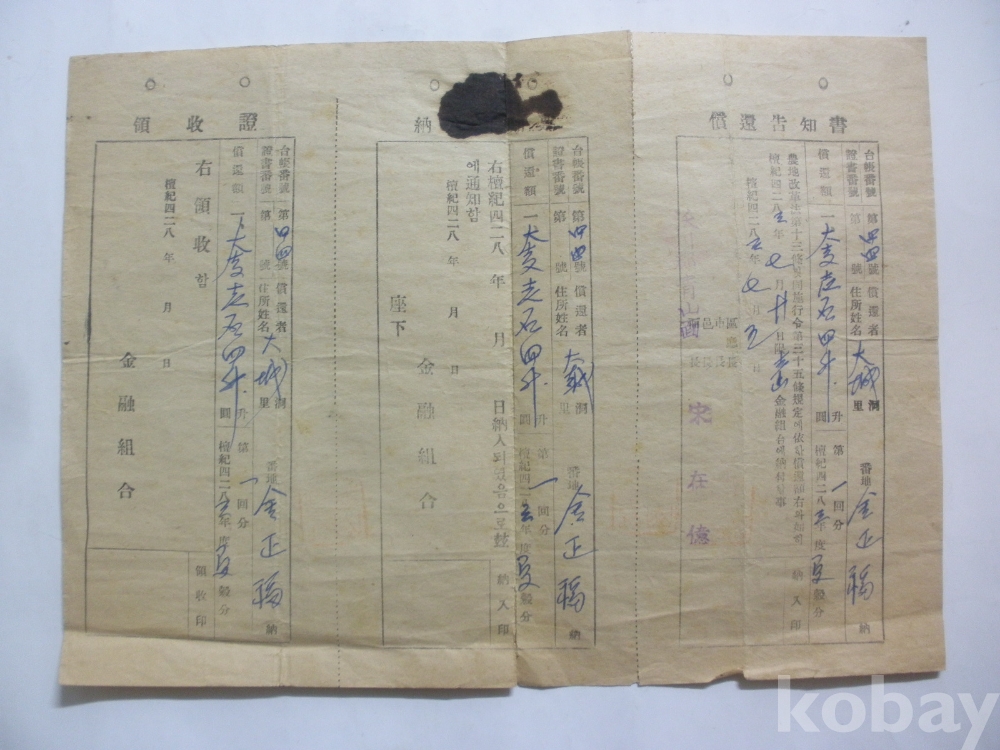 償還告知書
台帳番號 第 号
證書番號 第 四 號 償還者 住所姓名 大城 洞里 番地 金正 納
償還額 一 大麥 石四斗 升 圓 第一回分 檀紀四二八 年度 夏穀分
農地改革法第十三條及同施行令第三十五條規定에依
檀紀四二八 年 七月 日限 金融組合에納付
檀紀四二八 年 七月 五日
青山面
區廳長
市長
邑長
面長
宋在億
納入印
納
台帳番號 第 號
證書番號 第 四 號 償還者 住所姓名 大城 洞里 番地 金正 納
償還額 一 大麥 石四斗 升 圓 第一回分 檀紀四二八 年度 夏穀分
右檀紀四二八 年 月 日納入되였음으로玆
에通知함
檀紀四二八 年 月 日
金融組合
座下
納入印
領收證
台帳番號 第 號
證書番號 第 四 號 償還者 住所姓名 大城 洞里 番地 金正 納
償還額 一 大麥 石四斗 圓 第一回分 檀紀四二八 年度 夏穀分
右領收함
檀紀四二八 年 月 日
金融組合
領收印
kobay